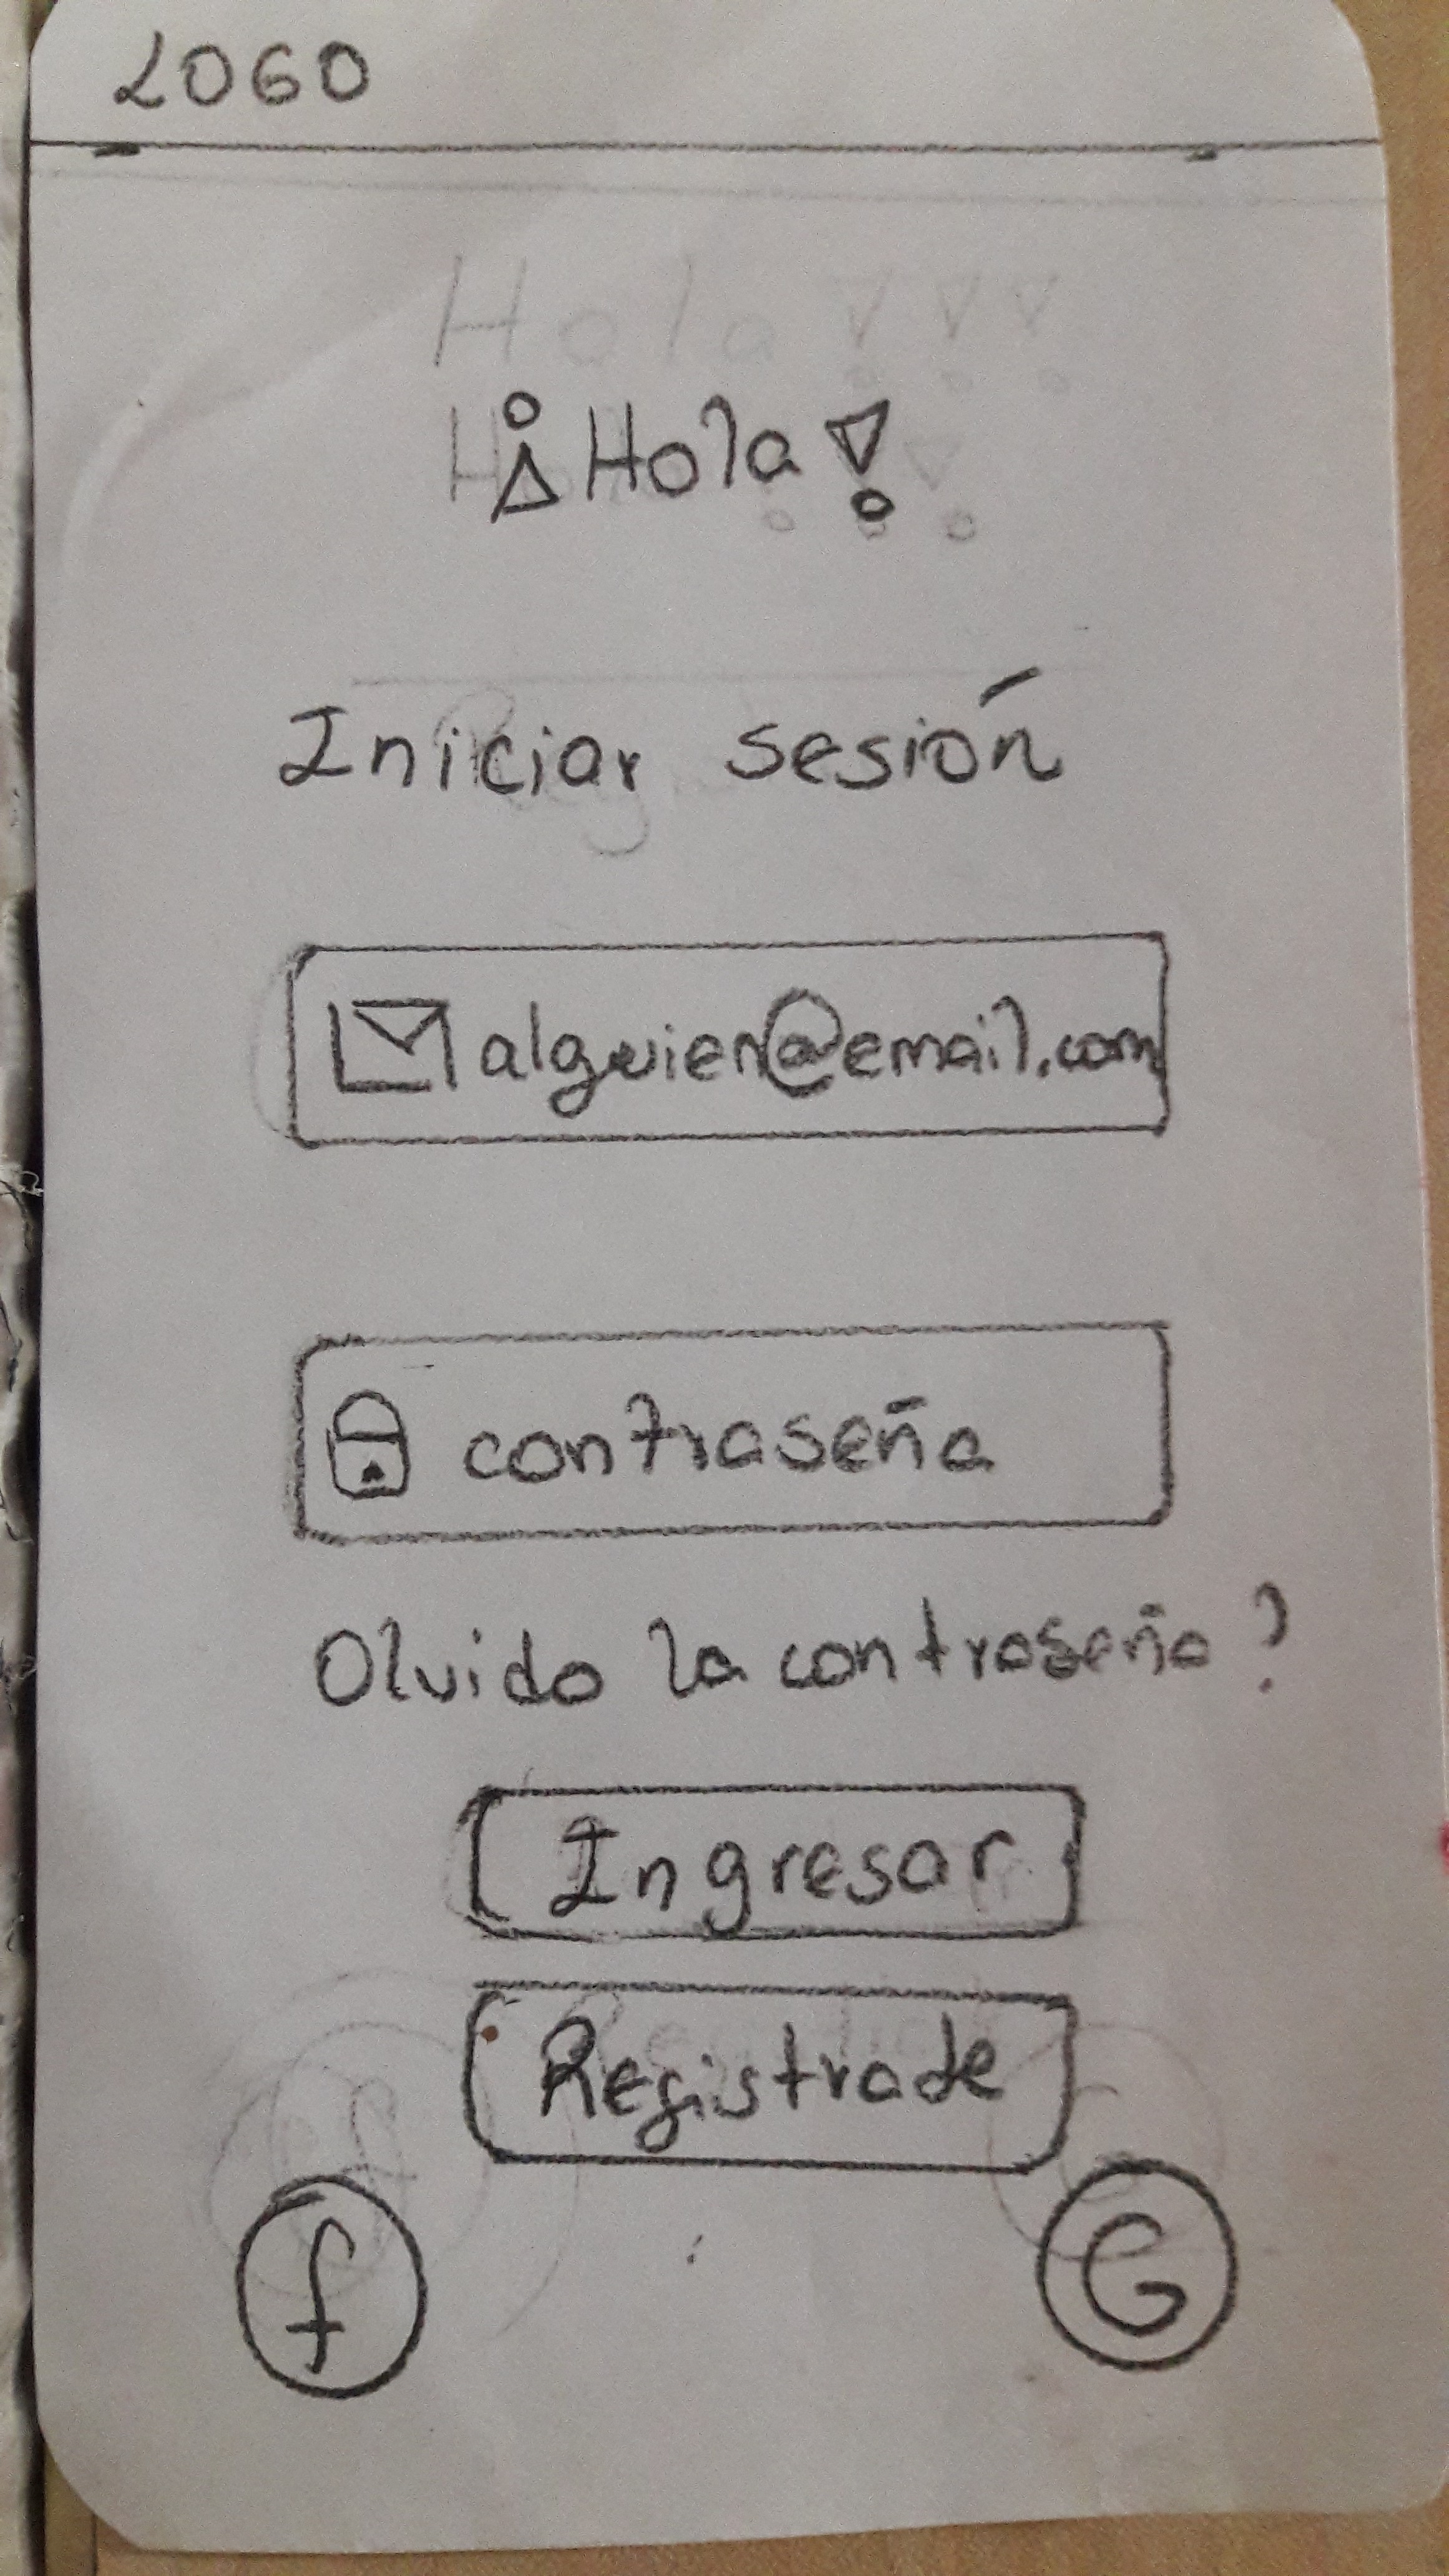 LOGO
¡Hola!
Iniciar sesión
alguien@email.com
contraseña
Olvido la contraseña?
Ingresar
Registrate
f
G